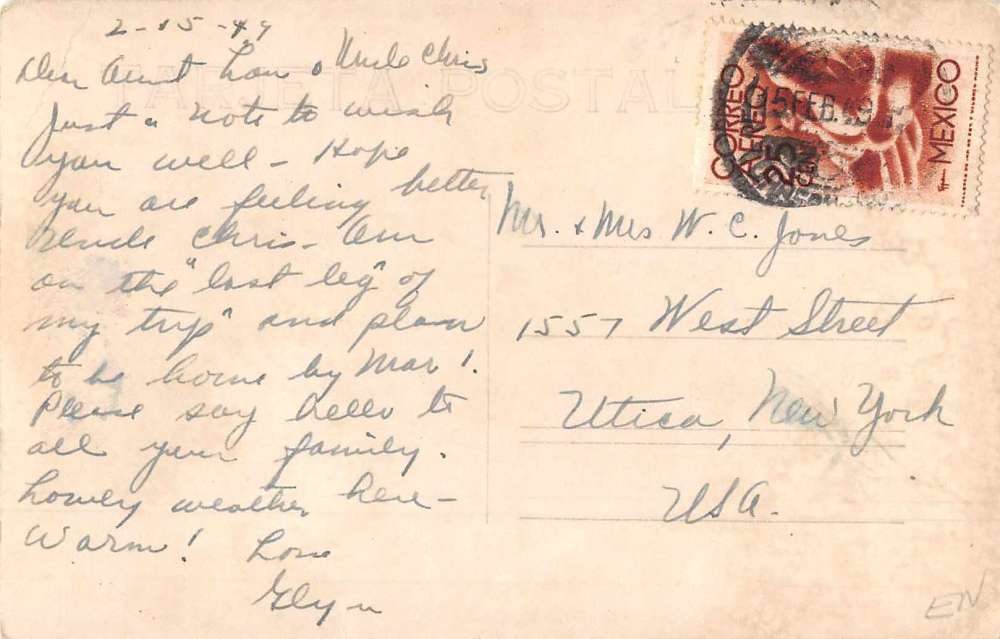 2-15-49
Dear Aunt Lou & Uncle Chris
Just a note to wish
you well - Hope
you are feeling better
Uncle Chris - Am
on the "last leg" of
my trip" and plan
to be home by Mar 1.
Please say hello to
all your family.
Lovely weather here -
Warm! Love
Glyn
TARJETA POSTAL
CORREO
AEREO
25
MEXICO
15 FEB. 49
Mr. & Mrs W. C. Jones
1557 West Street
Utica, New York
USA.
EN